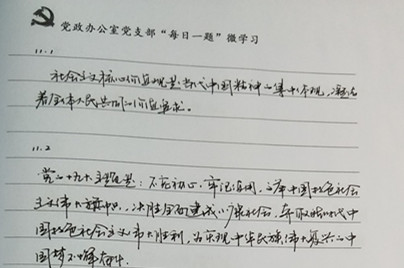 党政办公室党支部“每日一题”微学习
11.1
社会主义核心价值观是当代中国精神的集中体现，凝结
着全体人民共同的价值追求。
11.2
党的十九大主题是：不忘初心，牢记使命，高举中国特色社会
主义伟大旗帜，决胜全面建成小康社会，夺取新时代中
国特色社会主义伟大胜利，为实现中华民族伟大复兴的中
国梦不懈奋斗。